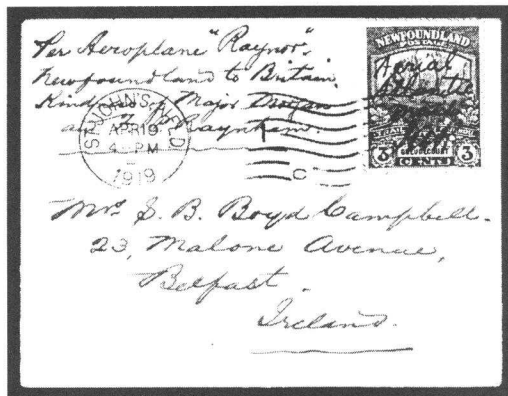 Per Aeroplane "Raynor".
Newfoundland to Britain.
Kindness of Major
and F. P. Raynham.
ST. JOHN'S, NFLD
APR 19
4 PM
1919
C
NEWFOUNDLAND
POSTAGE
Aerial
Atlantic
Mail
3 3
CENTS
Mrs S. B. Boyd Campbell.
23, Malone Avenue,
Belfast.
Ireland.